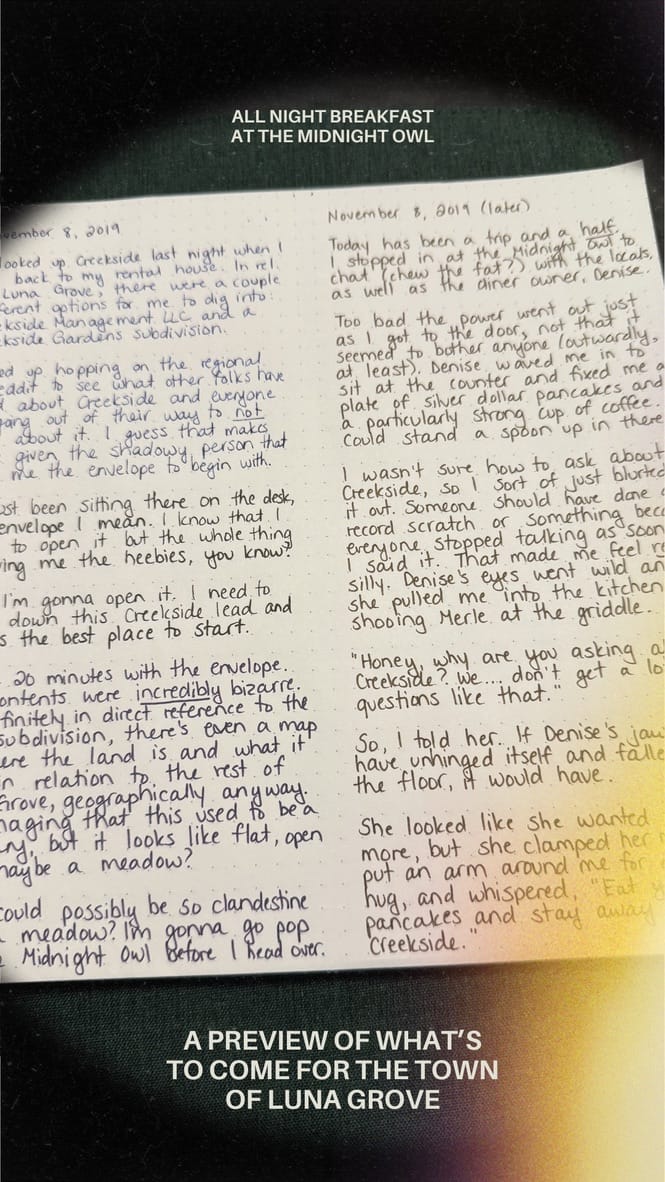 ALL NIGHT BREAKFAST
AT THE MIDNIGHT OWL
vember 8, 2019
looked up Creekside last night when I
back to my rental house. In rel
Luna Grove, there were a couple
ferent options for me to dig into:
kside Management LLC and a
kside Gardens subdivision.
ed up hopping on the regional
eddit to see what other folks have
d about Creekside and everyone
oing out of their way to not
about it. I guess that makes
given the shadowy person that
me the envelope to begin with.
ust been sitting there on the desk,
envelope I mean. I know that I
to open it but the whole thing
ving me the heebies, you know?
I'm gonna open it. I need to
down this Creekside lead and
s the best place to start.
20 minutes with the envelope.
ontents were incredibly bizarre.
finitely in direct reference to the
subdivision, there's even a map
ere the land is and what it
in relation to the rest of
Grove, geographically anyway.
maging that this used to be a
ny, but it looks like flat, open
maybe a meadow?
could possibly be so clandestine
meadow? I'm gonna go pop
e Midnight Owl before I head over.
November 8, 2019 (later)
Today has been a trip and a half.
I stopped in at the Midnight Owl to
chat (chew the fat?) with the locals,
as well as the diner owner, Denise.
Too bad the power went out just
as I got to the door, not that it
seemed to bother anyone (outwardly,
at least). Denise waved me in to
sit at the counter and fixed me a
plate of silver dollar pancakes and
a particularly strong cup of coffee.
Could stand a spoon up in there
I wasn't sure how to ask about
Creekside, so I sort of just blurted
it out. Someone should have done a
record scratch or something beca
everyone stopped talking as soon
I said it. That made me feel re
silly. Denise's eyes went wild an
she pulled me into the kitchen
shooing Merle at the griddle.
"Honey, why are you asking a
Creekside? We... don't get a lo
questions like that."
So, I told her. If Denise's jaw
have unhinged itself and falle
the floor, it would have.
She looked like she wanted
more, but she clamped her
put an arm around me for a
hug, and whispered, "Eat y
pancakes and stay away
Creekside."
A PREVIEW OF WHAT'S
TO COME FOR THE TOWN
OF LUNA GROVE